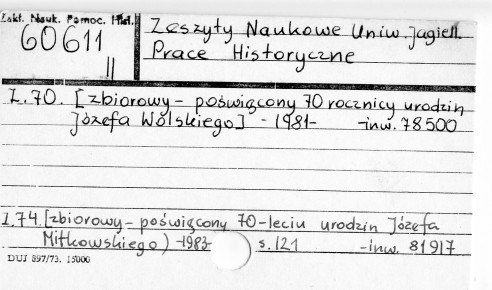 Zakł. Nauk. Pomoc. Hist.
60611
II
Zeszyty Naukowe Uniw. Jagiell.
Prace Historyczne
Z. 70. [zbiorowy - poświęcony 70 rocznicy urodzin
Józefa Wolskiego] - 1981 - - inw. 78500
Z. 74. [zbiorowy - poświęcony 70-leciu urodzin Józefa
Mitkowskiego) - 1983 - s. 121 - inw. 81917
DUJ 897/73. 15000